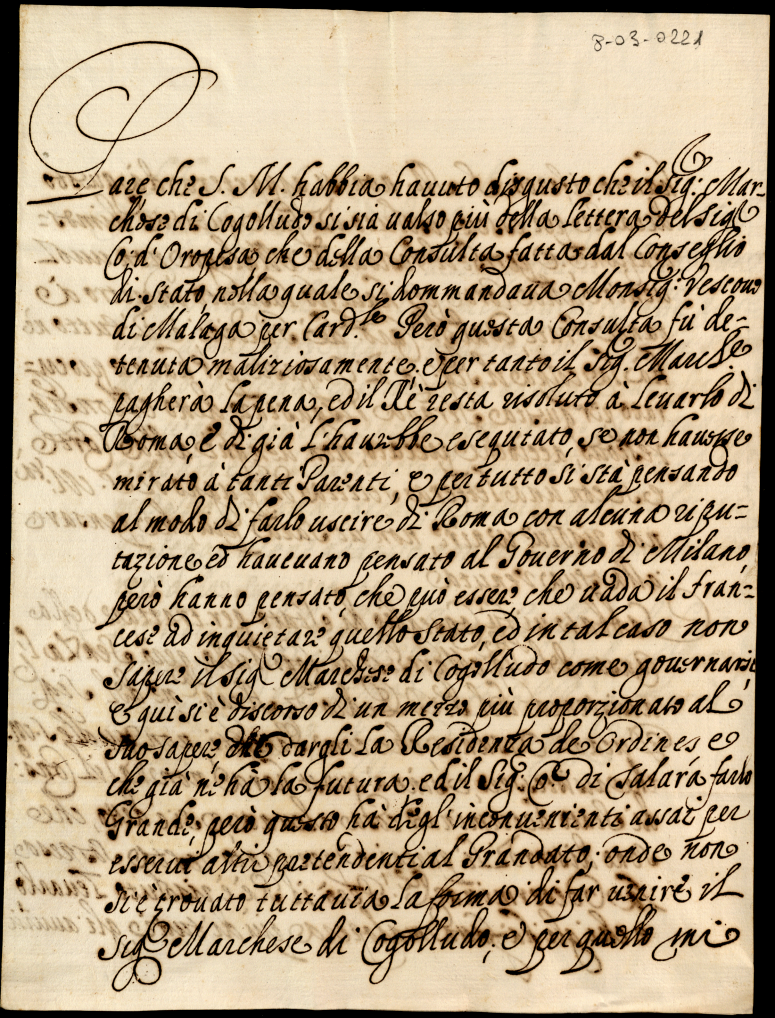 8-03-0221
Pare che S. M. habbia havuto disgusto che il Sig.r Mar-
chese di Cogolludo si sia valso più della lettera del Sig.r
Co: d'Oropesa che della Consulta fatta dal Conseglio
di Stato nella quale si dommandava Monsig.r Vescovo
di Malaga per Card.le Però questa Consulta fù de-
tenuta maliziosamente, e per tanto il Sig. March.e
pagherà la pena, ed il Rè resta risoluto à levarlo di
Roma, e di già l'haverebbe esequitato, se non havesse
mirato à tanti Parenti, e per tutto si stà pensando
al modo di farlo uscire di Roma con alcuna ripu-
tazione ed havevano pensato al Governo di Milano,
però hanno pensato, che può essere che vada il fran-
cese ad inquietare quello Stato, ed in tal caso non
sapere il Sig.r Marchese di Cogolludo come governarsi,
e qui si è discorso di un mezzo più proporzionato al
suo sapere, dargli la Residenza de Ordines e
che già n'hà la futura, ed il Sig.r Co: di Salara farlo
Grande, però questo hà degl'inconvenienti assai per
esservi altri pretendenti al Grandato, onde non
si è trovato tuttavia la forma di far venire il
Sig.r Marchese di Cogolludo, e per quello mi